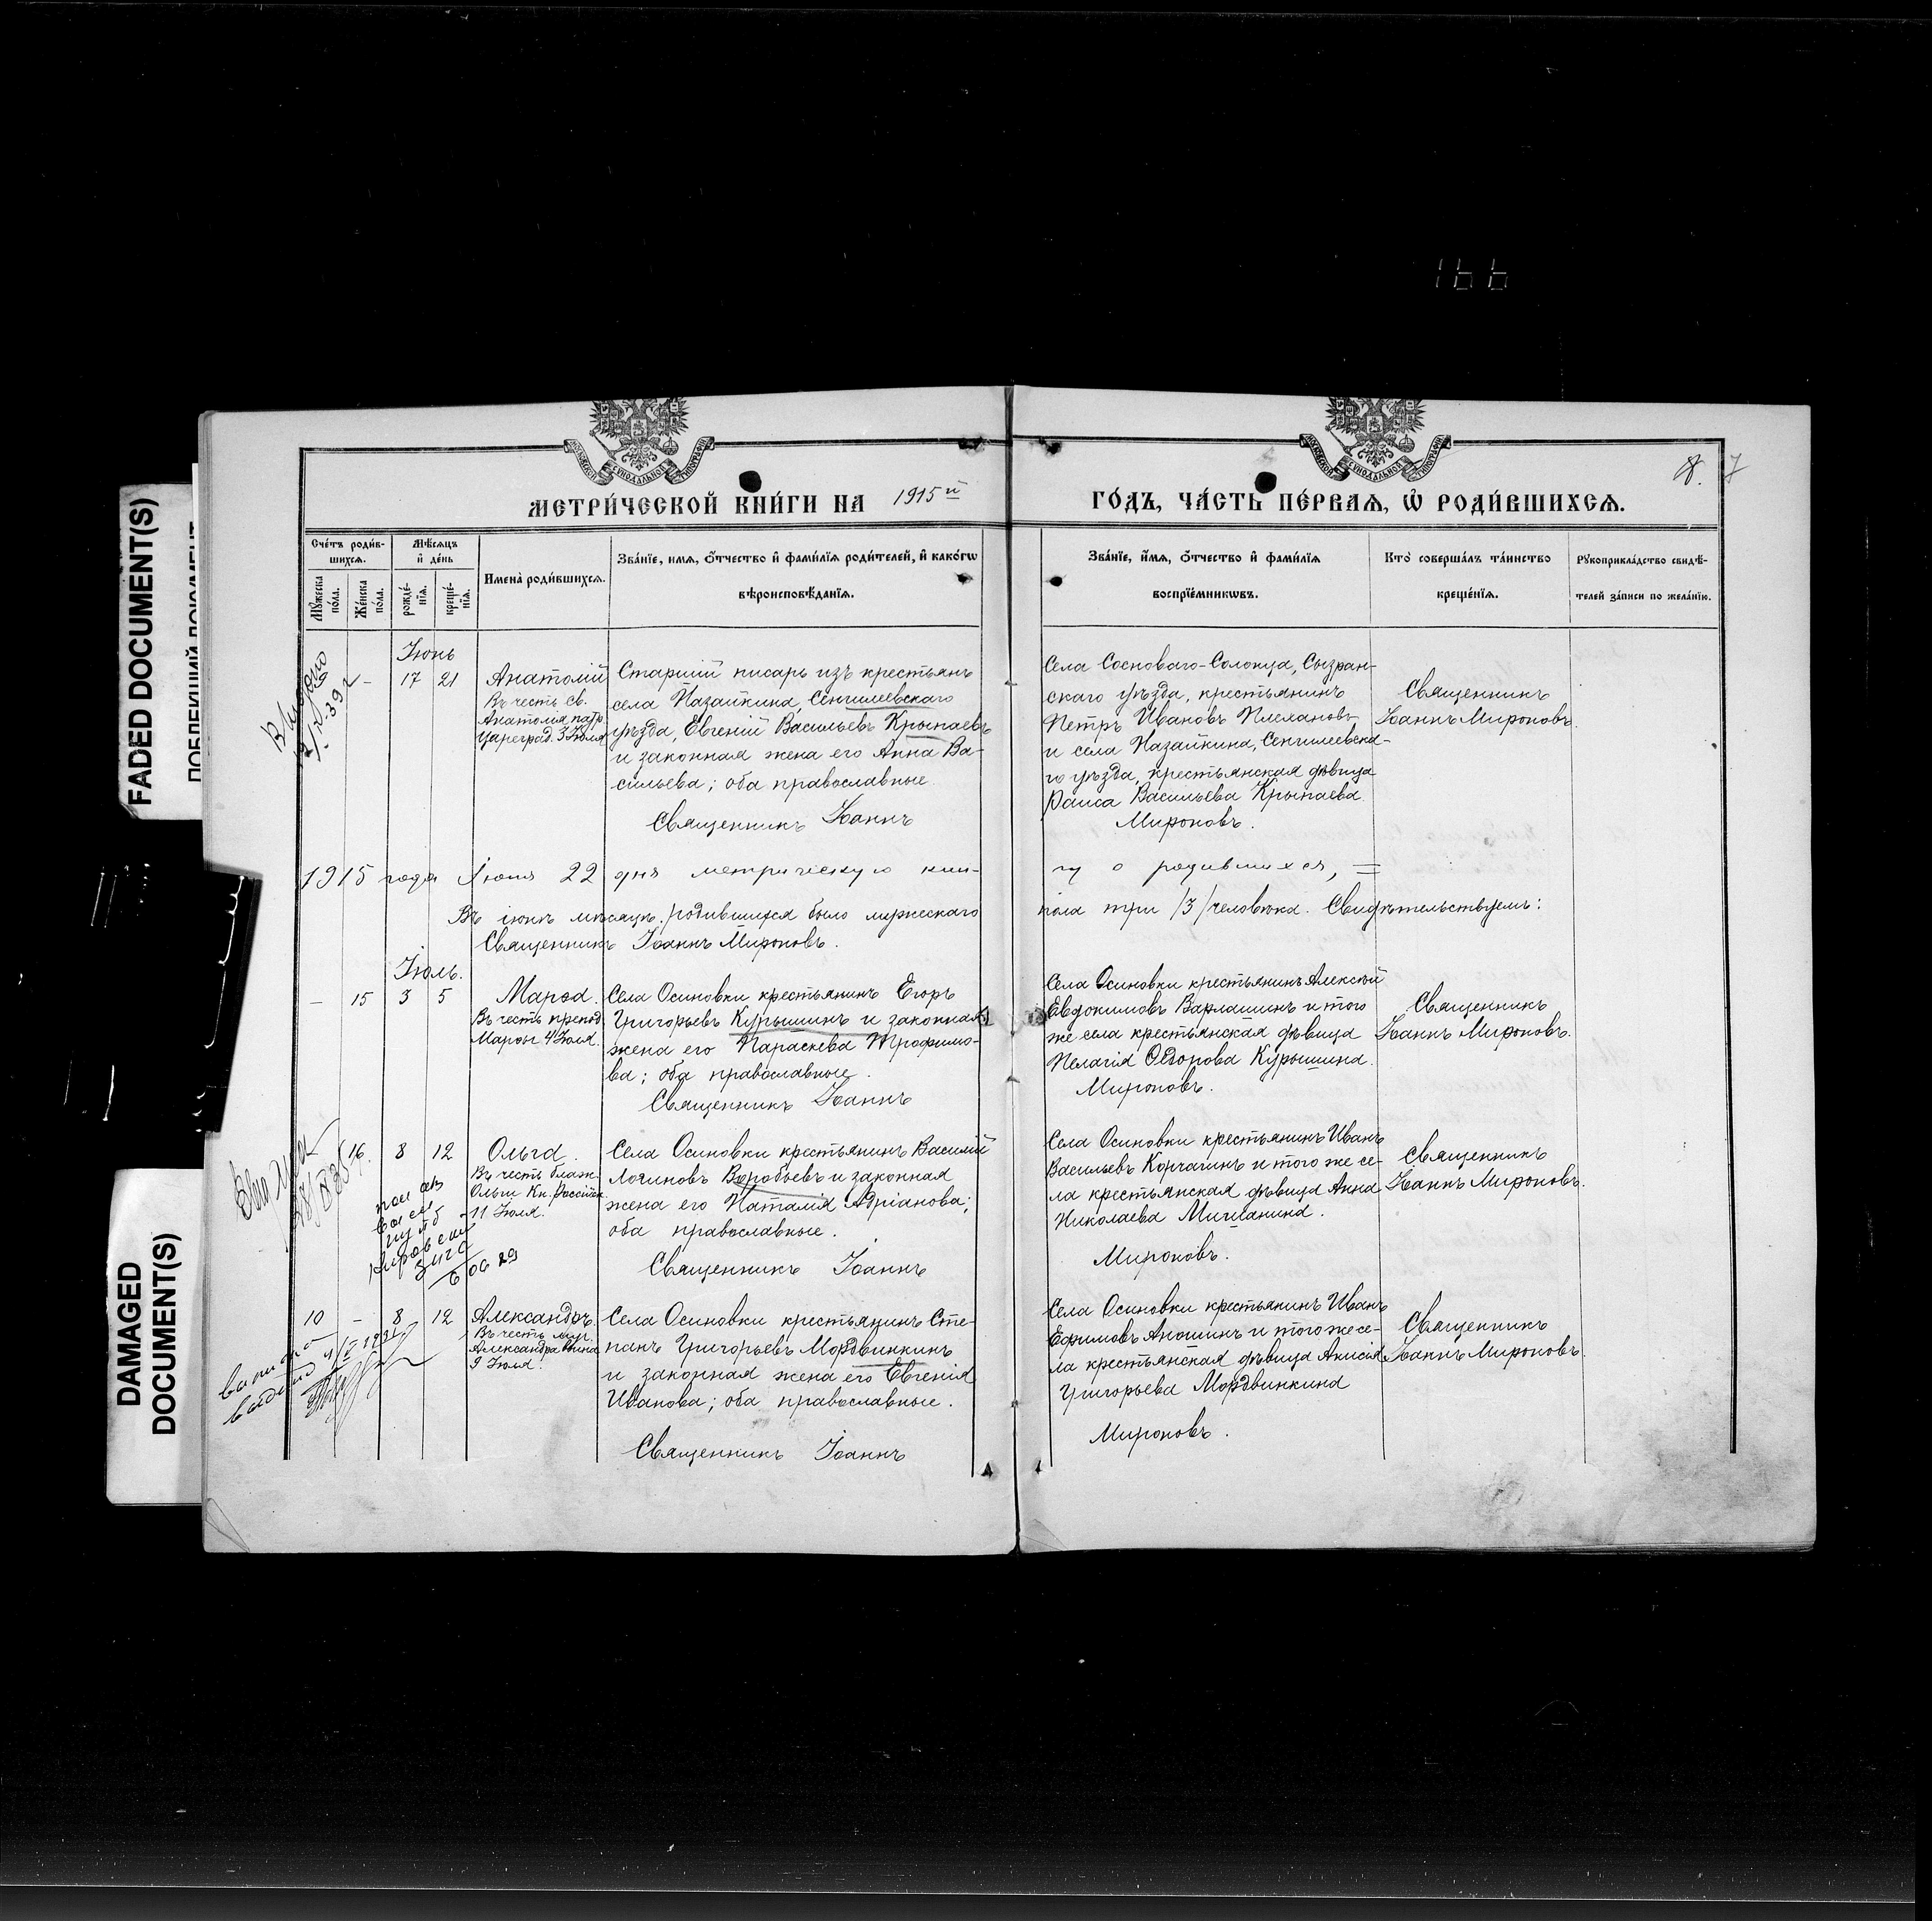 166
FADED DOCUMENT(S)
DAMAGED
DOCUMENT(S)
8. 7
МЕТРИ́ЧЕСКОЙ КНИ́ГИ НА 1915й ГО́ДЪ, ЧА́СТЬ ПЕ́РВАЯ, Ѽ РОДИ́ВШИХСЯ.
Сче́тъ роди́в-
шихся.
Мꙋ́жеска по́ла.
Же́нска по́ла.
Мѣ́сяцъ
и҆ де́нь
рожде́-
нїя.
креще́-
нїя.
Имена̀ роди́вшихся.
Зва́нїе, имя, о҆́тчество и҆ фами́лїя роди́телей, и҆ како́гѡ
вѣроисповѣ́данїя.
Зва́нїе, и҆́мя, о҆́тчество и҆ фами́лїя
воспрїе́мникѡвъ.
Кто̀ соверша́лъ та́инство
креще́нїя.
Рꙋкоприкла́дство свидѣ́-
телей за́писи по жела́нїю.
Іюнь
– 17 21
Анатолій
Въ честь св.
Анатолія патр.
Цареград. 3 Іюля
Старшій писарь изъ крестьянъ
села Назайкина, Сенгилеевскаго
уѣзда, Евгеній Васильевъ Крыпаевъ
и законная жена его Анна Ва-
сильева; оба православные.
Священникъ Іоаннъ
Села Сосноваго-Солонца, Сызран-
скаго уѣзда, крестьянинъ
Петръ Ивановъ Плехановъ
и села Назайкина, Сенгилеевска-
го уѣзда, крестьянская дѣвица
Раиса Васильева Крыпаева.
Мироновъ.
Священникъ
Іоаннъ Мироновъ.
1915 года Іюня 22 дня метрическую кни-
гу о родившихся, =
Въ іюнѣ мѣсяцѣ родившихся было мужескаго
пола три /3/ человѣка. Свидѣтельствуемъ:
Священникъ Іоаннъ Мироновъ.
Іюль.
– 15 3 5
Марѳа.
Въ честь препод.
Марѳы 4 Іюля.
Села Осиновки крестьянинъ Егоръ
Григорьевъ Курышинъ и законная
жена его Параскева Трофимо-
ва; оба православные.
Священникъ Іоаннъ
Села Осиновки крестьянинъ Алексѣй
Евдокимовъ Варлашинъ и того
же села крестьянская дѣвица
Пелагія Ѳедорова Курышина.
Мироновъ.
Священникъ
Іоаннъ Мироновъ.
16. 8 12
Ольга.
Въ честь блаж.
Ольги Кн. Россійск.
11 Іюля.
Села Осиновки крестьянинъ Василій
Логиновъ Воробьевъ и законная
жена его Наталія Адріанова;
оба православные.
Священникъ Іоаннъ
Села Осиновки крестьянинъ Иванъ
Васильевъ Корчагинъ и того же се-
ла крестьянская дѣвица Анна
Николаева Мишанина.
Мироновъ.
Священникъ
Іоаннъ Мироновъ.
10 – 8 12
Александръ.
Въ честь муч.
Александра воина
9 Іюля.
Села Осиновки крестьянинъ Сте-
панъ Григорьевъ Мордвинкинъ
и законная жена его Евгенія
Иванова; оба православные.
Священникъ Іоаннъ
Села Осиновки крестьянинъ Иванъ
Ефимовъ Аношинъ и того же се-
ла крестьянская дѣвица Анисія
Григорьева Мордвинкина
Мироновъ.
Священникъ
Іоаннъ Мироновъ.